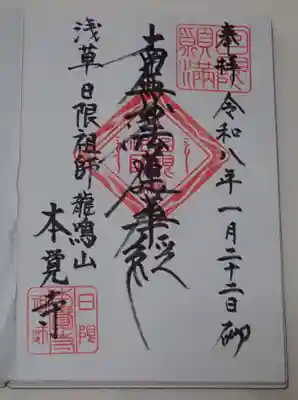 奉拝 令和八年一月二十二日 御
日限
願満
南無妙法蓮華経
浅草日限祖師龍鳴山
本覚寺